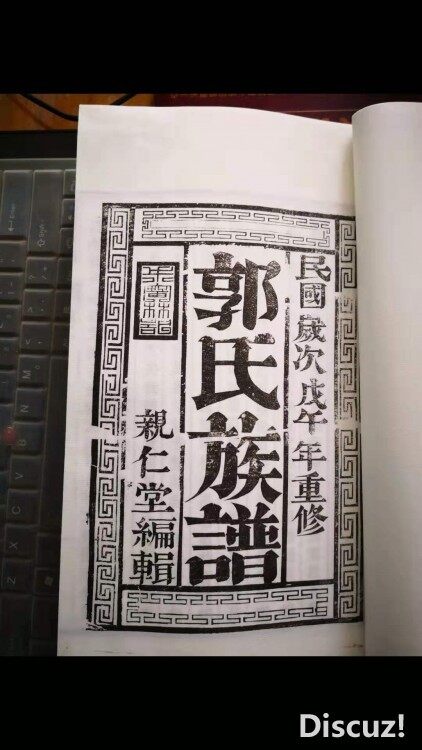 民國歲次戊午年重修
郭氏族譜
親仁堂編輯
Discuz!